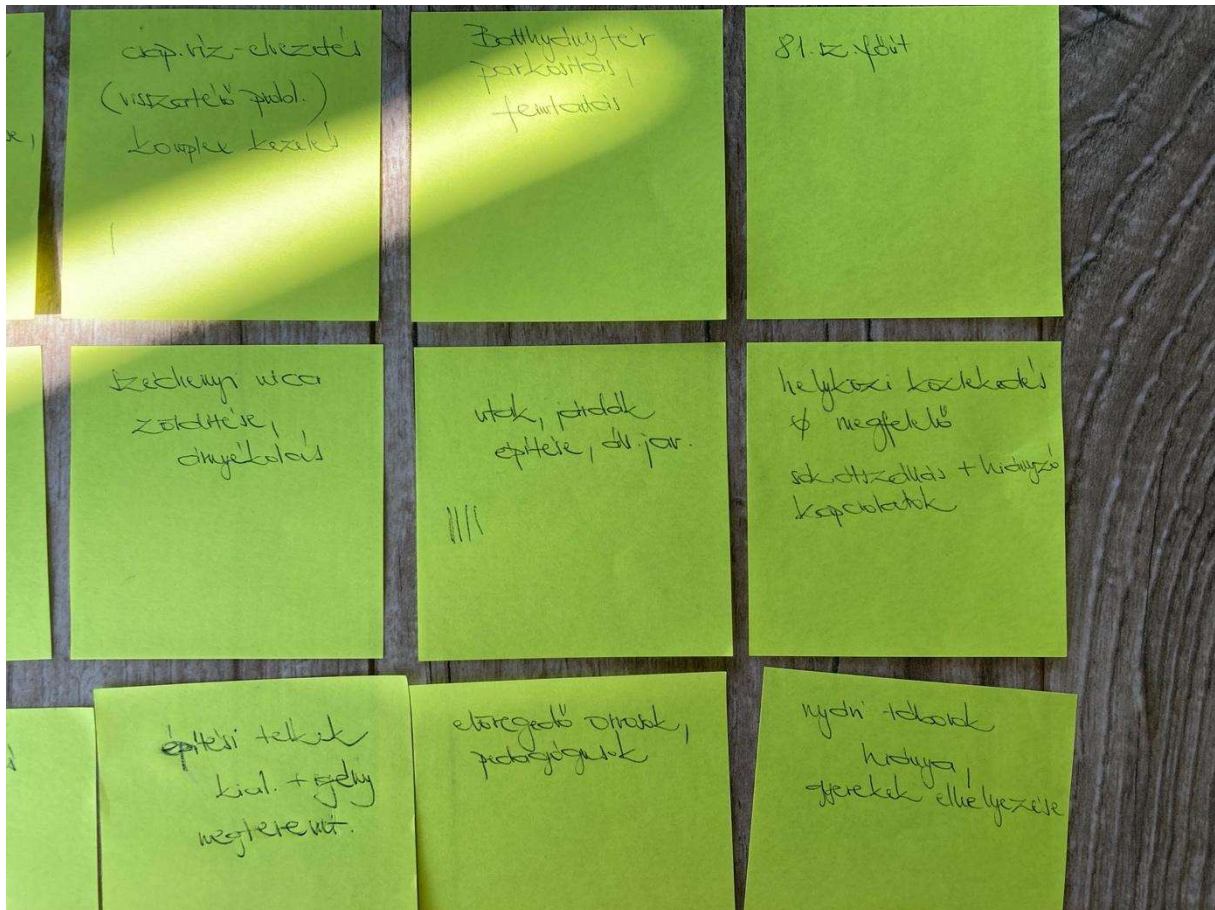 csap.víz-elvezetés
(visszatérő probl.)
komplex kezelés
Batthyány tér
parkosítás,
fenntartás
81. sz. főút
Széchenyi utca
zöldítése,
árnyékolás
utak, járdák
építése,
helyközi közlekedés
megfelelő
sok átszállás + hiányzó
kapcsolatok
építési telkek
kial. + igény
megteremt.
elöregedő orvosok,
pedagógusok
nyári táborok
hiánya,
gyerekek elhelyezése